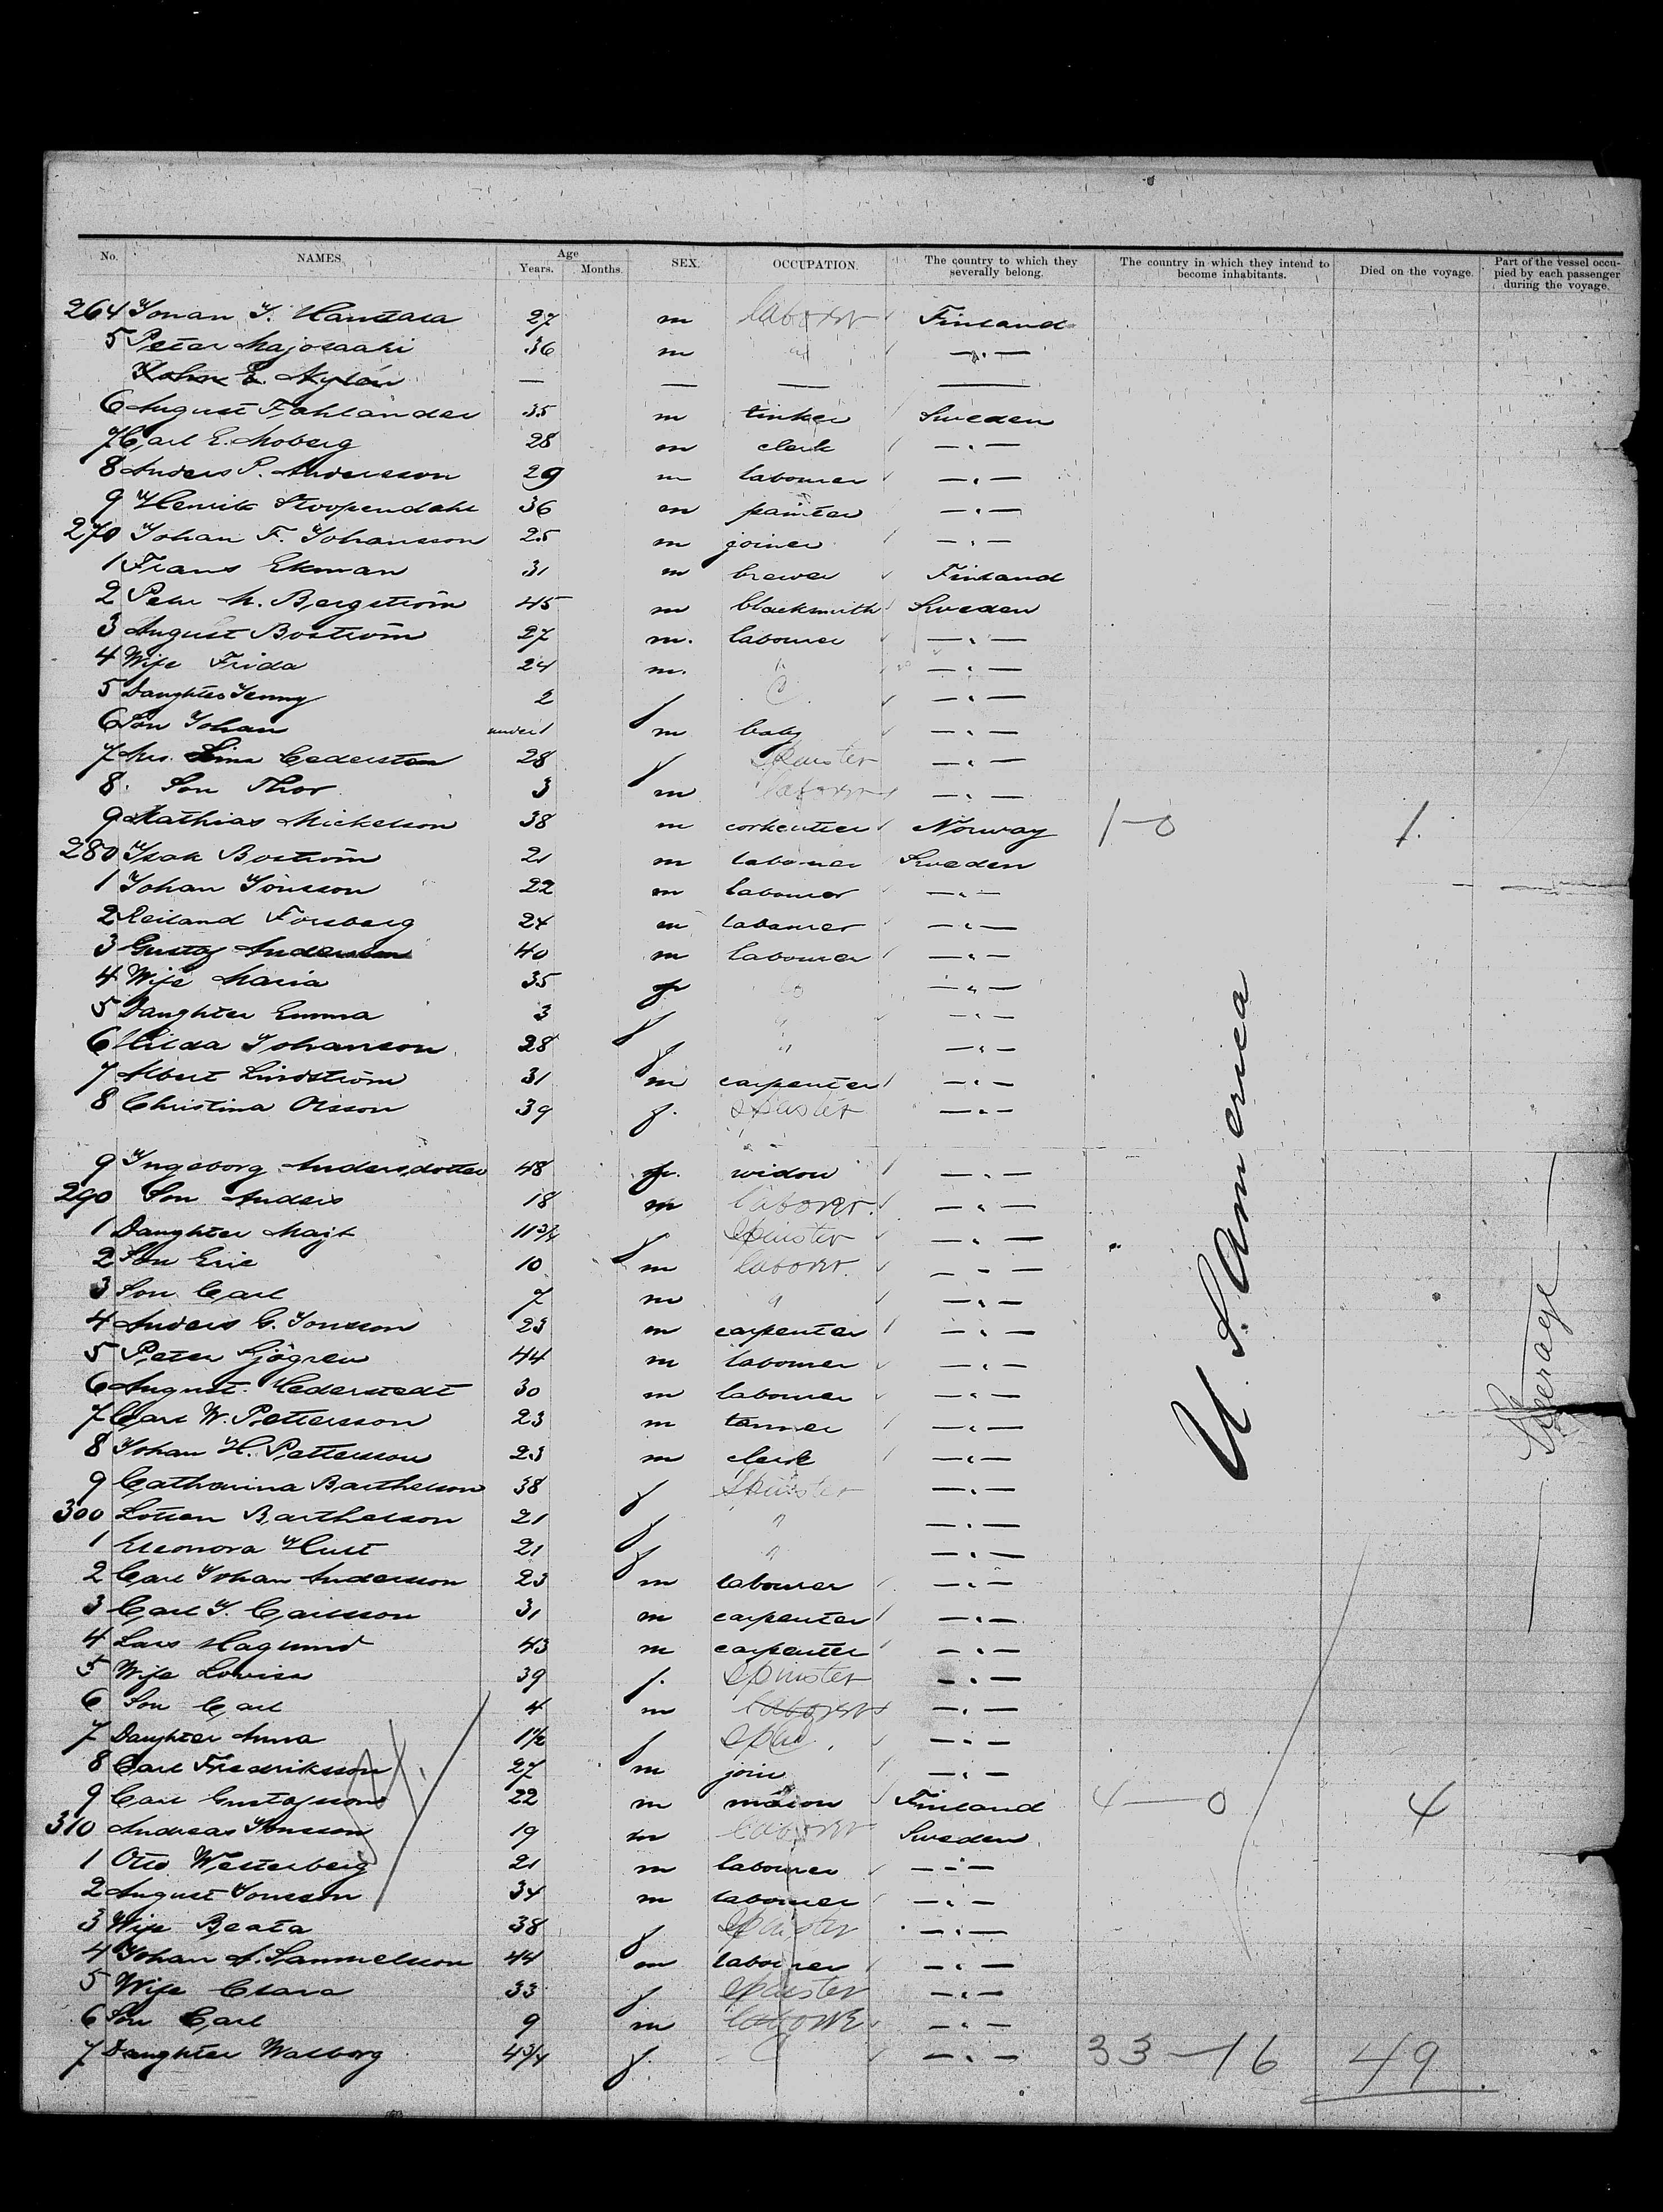 No. NAMES. Age Years. Months. SEX. OCCUPATION. The country to which they severally belong. The country in which they intend to become inhabitants. Died on the voyage. Part of the vessel occupied by each passenger during the voyage.
264 Johan J. 27 m laborer Finland
5 Peter Majosaari 36 m " —"—
John E. Nylén — — — —
6 August Fahlander 35 m tinker Sweden
7 Carl E. Moberg 28 m clerk —"—
8 Anders P. Andersson 29 m labourer —"—
9 Henrik Stoopendahl 36 m painter —"—
270 Johan F. Johansson 25 m joiner —"—
1 Frans Ekman 31 m brewer Finland
2 Pehr M. Bergström 45 m blacksmith Sweden
3 August Boström 27 m. labourer —"—
4 Wife Frida 24 m. " —"—
5 Daughter Jenny 2 f C —"—
6 Son Johan under 1 m baby —"—
7 Mrs. Lina 28 f Spinster —"—
8 Son Thor 3 m laborer —"—
9 Mathias Mickelson 38 m Norway 1–0 1.
280 Isak Boström 21 m labourer Sweden
1 Johan Jönsson 22 m labourer —"—
2 Forsberg 24 m labourer —"—
3 Gustaf Anderson 40 m labourer —"—
4 Wife Maria 35 f —"—
5 Daughter Emma 3 f " —"—
6 Hilda Johanson 28 f " —"—
7 Albert Lindström 31 m carpenter —"—
8 Christina Olsson 39 f. Spinster —"—
9 Ingeborg Andersdotter 48 f. widow —"—
290 Son Anders 18 m laborer. —"—
1 Daughter Majt 11 3/4 f Spinster —"—
2 Son Eric 10 m laborer. —"—
3 Son Carl 7 m " —"—
4 Anders G. Jonsson 23 m carpenter —"—
5 Peter Sjögren 44 m labourer —"—
6 August Cederstedt 30 m labourer —"—
7 Carl W. Pettersson 23 m tanner —"—
8 Johan H. Pettersson 23 m clerk —"—
9 Catharina Barthelson 38 f Spinster —"—
300 Lotten Barthelson 21 f " —"—
1 Eleonora Hult 21 f " —"—
2 Carl Johan Anderson 23 m labourer —"—
3 Carl J. Carlsson 31 m carpenter —"—
4 Lars Haglund 43 m carpenter —"—
5 Wife Lovisa 39 f. Spinster —"—
6 Son Carl 4 m laborer —"—
7 Daughter Anna 1 1/2 f —"—
8 Carl Fredriksson 27 m join —"—
9 Carl Gustafsson 22 m mason Finland 4—0 4
310 Andreas Jonsson 19 m laborer Sweden
1 Otto Westerberg 21 m labourer —"—
2 August Jonsson 34 m labourer —"—
3 Wife Beata 38 f Spinster —"—
4 Johan A. Samuelsson 44 m labourer —"—
5 Wife Clara 33 f Spinster —"—
6 Son Carl 9 m laborer —"—
7 Daughter Walborg 4 3/4 f. —"— 33—16 49
U. S. America
Steerage